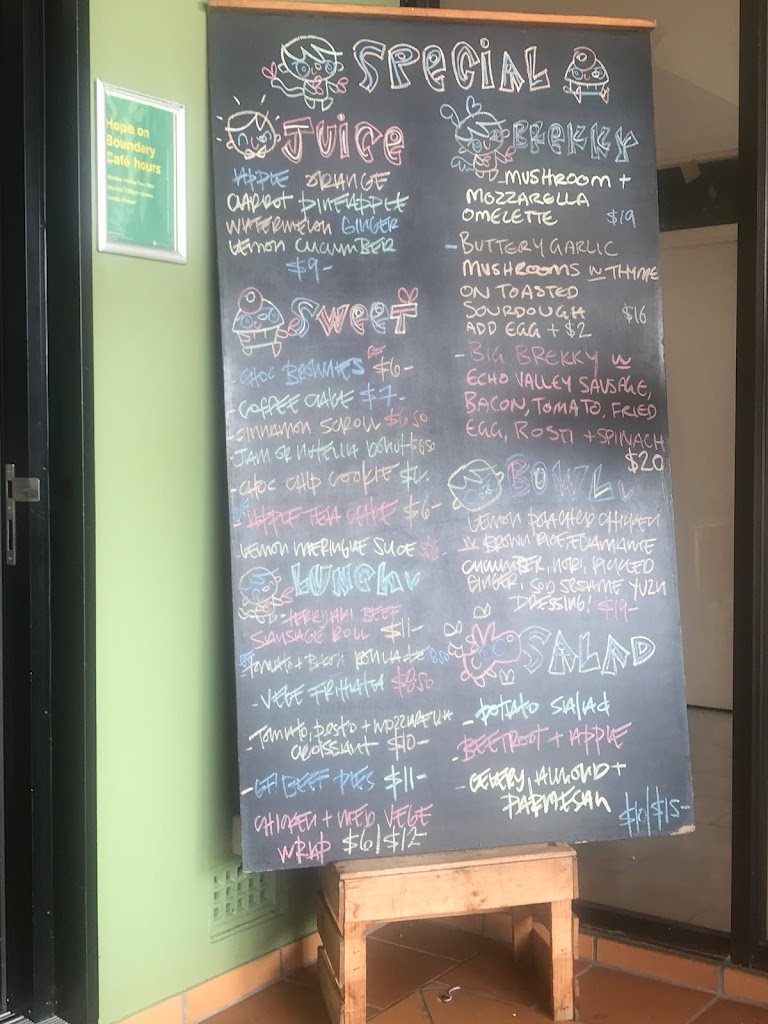 SPECIAL
Hope on
Boundary
Café hours
JUICE
APPLE ORANGE
CARROT PINEAPPLE
WATERMELON GINGER
LEMON CUCUMBER
$9-
SWEET
-CHOC BROWNIES GF $6-
-COFFEE CAKE $7-
-CINNAMON SCROLL $6.50
-JAM OR NUTELLA DONUT $6.50
-CHOC CHIP COOKIE
-APPLE TEA CAKE $6-
-LEMON MERINGUE SLICE
LUNCH
-TERIYAKI BEEF
SAUSAGE ROLL $11-
TOMATO + BACON
-VEGE FRITTATA $8.50
-TOMATO, PESTO + MOZZARELLA
CROISSANT $10-
-GF BEEF PIES $11-
CHICKEN + MED VEGE
WRAP $6/$12-
BREKKY
-MUSHROOM +
MOZZARELLA
OMELETTE $19
-BUTTERY GARLIC
MUSHROOMS W THYME
ON TOASTED
SOURDOUGH $16
ADD EGG + $2
-BIG BREKKY W
ECHO VALLEY SAUSAGE,
BACON, TOMATO, FRIED
EGG, ROSTI + SPINACH
$20
BOWL
LEMON POACHED CHICKEN
W BROWN RICE, EDAMAME
CUCUMBER, NORI, PICKLED
GINGER, SOY SESAME YUZU
DRESSING! $19-
SALAD
-POTATO SALAD
-BEETROOT + APPLE
-CELERY, ALMOND +
PARMESAN
$10/$15-